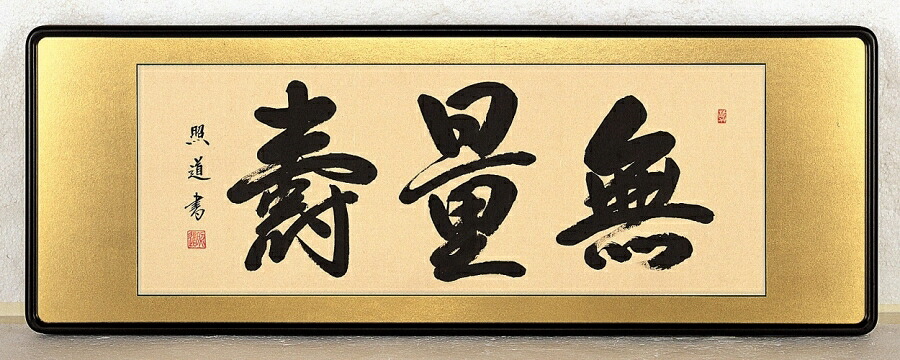 無量壽
照道書